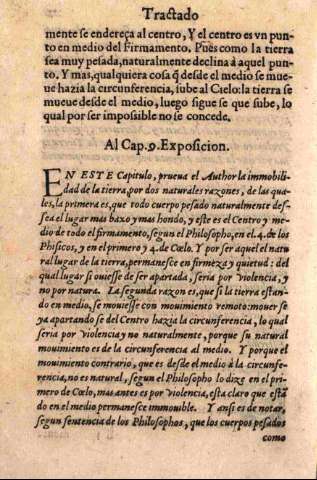 Tractado
mente se endereça al centro, Y el centro es vn pun-
to en medio del Firmamento. Pues como la tierra
sea muy pesada, naturalmente declina à aquel pun-
to. Y mas, qualquiera cosa q̃ desde el medio se mue-
ue hazia la circunferencia, sube al Cielo: la tierra se
mueue desde el medio, luego sigue se que sube, lo
qual por ser impossible no se concede.
Al Cap. 9. Exposicion.
EN ESTE Capitulo, prueua el Author la immobili-
dad de la tierra, por dos naturales razones, de las qua-
les, la primera es, que todo cuerpo pesado naturalmente des-
sea el lugar mas baxo y mas hondo, y este es el Centro y me-
dio de todo el firmamento, segun el Philosopho, en el .4. de los
Phisicos, y en el primero y 4. de Cœlo. Y por ser aquel el natu
ral lugar de la tierra, permanesce en firmeza y quietud: del
qual lugar si ouiesse de ser apartada, seria por violencia, y
no por natura. La segunda razon es, que si la tierra estan-
do en medio, se mouiesse con mouimiento remoto: mouer se
ya apartando se del Centro hazia la circunferencia, lo qual
seria por violencia y no naturalmente, porque su natural
mouimiento es de la circunferencia al medio. Y porque el
mouimiento contrario, que es desde el medio à la circunfe-
rencia, no es natural, segun el Philosopho lo dize en el pri-
mero de Cœlo, mas antes es por violencia, esta claro que està
do en el medio permanesce immouible. Y ansi es de notar,
segun sentencia de los Philosophos, que los cuerpos pesados
como